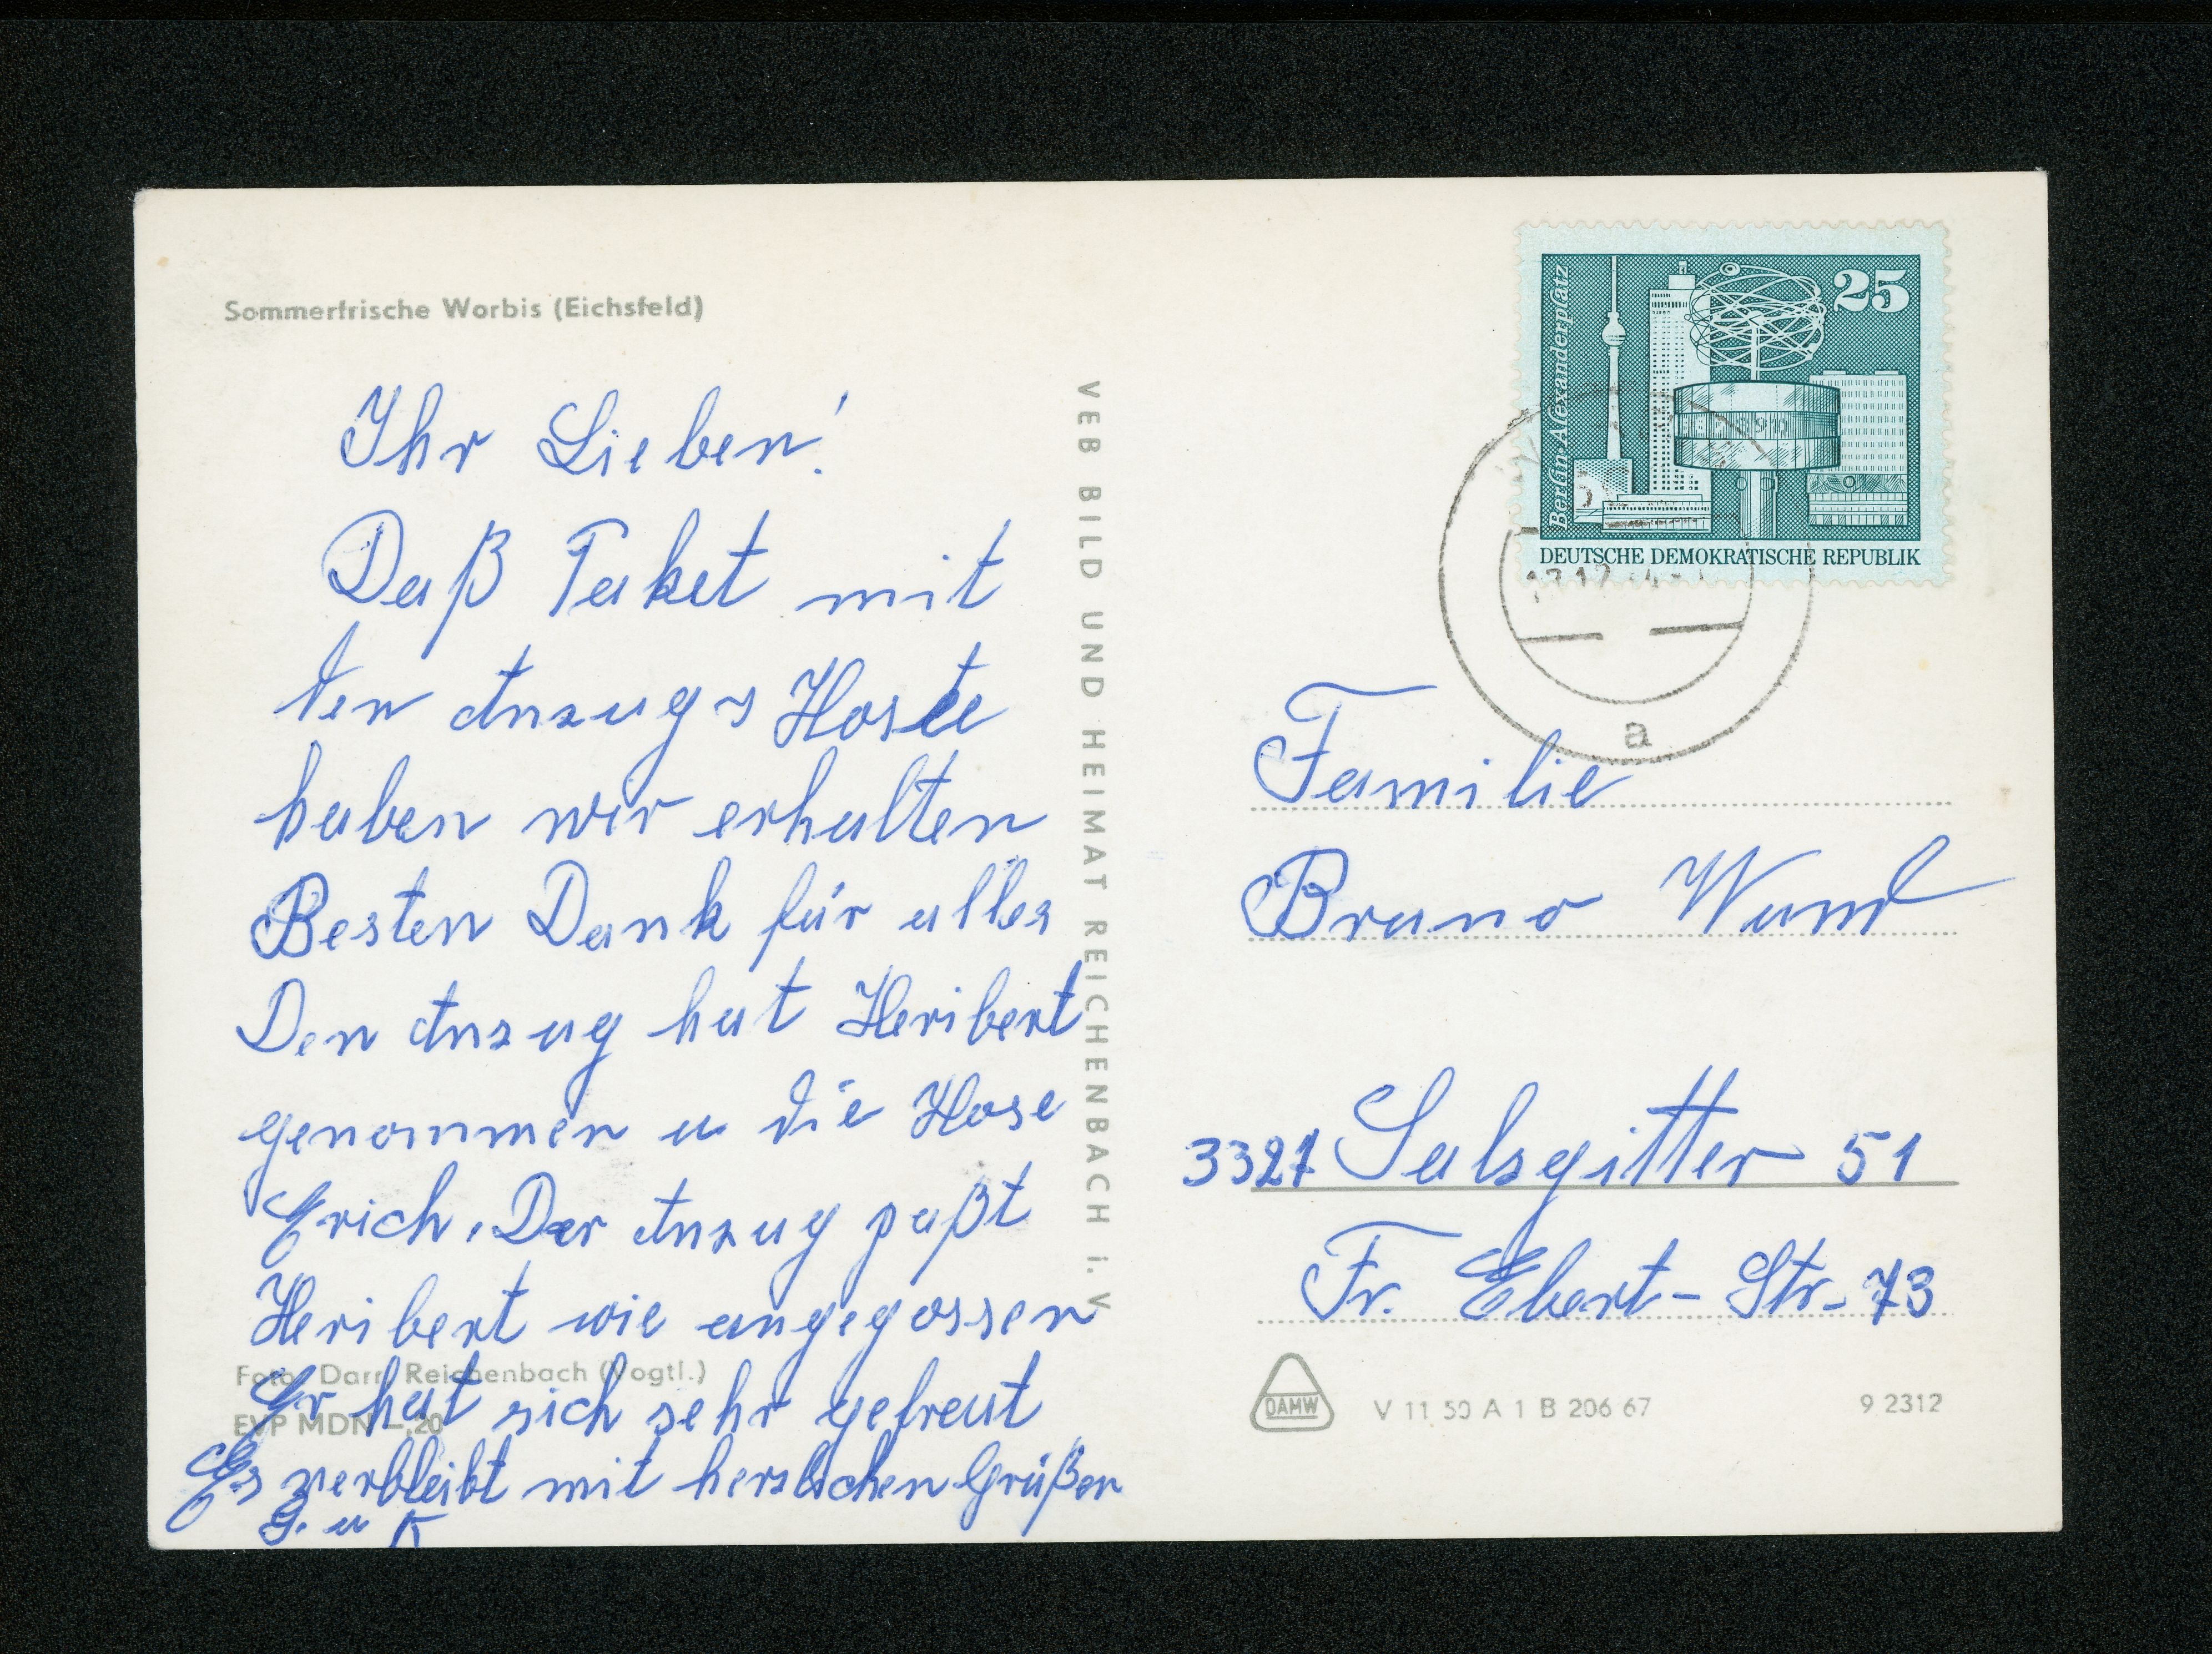 Sommerfrische Worbis (Eichsfeld)
Ihr Lieben!
Daß Paket mit
den Anzug u Hose
haben wir erhalten
Besten Dank für alles
Den Anzug hat Heribert
genommen u die Hose
Erich. Der Anzug paßt
Heribert wie angegossen
Er hat sich sehr gefreut
Es verbleibt mit herzlichen Grüßen
G. u K
Foto: Darr, Reichenbach (Vogtl.)
EVP MDN –,20
VEB BILD UND HEIMAT REICHENBACH i. V.
Berlin-Alexanderplatz
25
DEUTSCHE DEMOKRATISCHE REPUBLIK
a
Familie
Bruno
3327 Salzgitter 51
Fr. Ebert-Str. 73
DAMW
V 11 50 A 1 B 206 67
9 2312